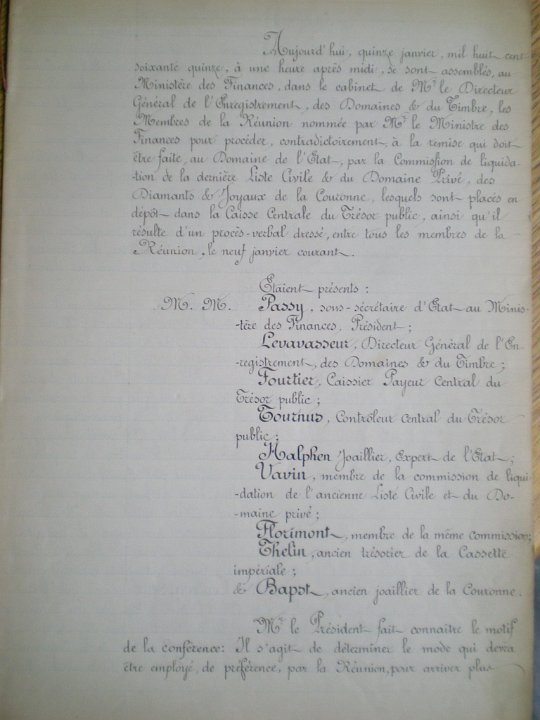 Aujourd'hui, quinze janvier, mil huit cent
soixante quinze, à une heure après midi, se sont assemblés, au
Ministère des Finances, dans le cabinet de Mr le Directeur
Général de l'Enregistrement, des Domaines & du Timbre, les
Membres de la Réunion nommée par Mr le Ministre des
Finances pour procéder, contradictoirement, à la remise qui doit
être faite, au Domaine de l'État, par la Commission de liquida-
tion de la dernière Liste Civile & du Domaine Privé, des
Diamants & Joyaux de la Couronne, lesquels sont placés en
dépôt dans la Caisse Centrale du Trésor public, ainsi qu'il
résulte d'un procès-verbal dressé, entre tous les membres de la
Réunion, le neuf janvier courant.
Étaient présents :
M. M. Passy, sous-secrétaire d'État au Minis-
-tère des Finances, Président ;
Levavasseur, Directeur Général de l'En-
-registrement, des Domaines & du Timbre ;
Fourtier, Caissier Payeur Central du
Trésor public ;
Tournus, Contrôleur central du Trésor
public ;
Halphen Joaillier, Expert de l'État ;
Vavin, membre de la commission de liqui-
-dation de l'ancienne Liste Civile et du Do-
-maine privé ;
Florimont, membre de la même commission;
Thelin, ancien trésorier de la Cassette
impériale ;
& Bapst, ancien joaillier de la Couronne.
Mr le Président fait connaître le motif
de la conférence: Il s'agit de déterminer le mode qui devra
être employé, de préférence, par la Réunion, pour arriver plus